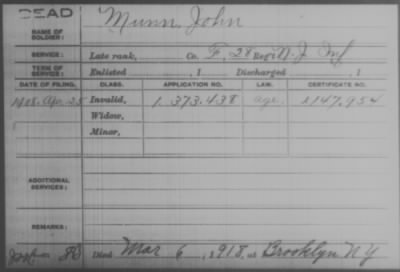 DEAD
Munn, John
NAME OF SOLDIER:
SERVICE: Late rank, Co. F, 28 Reg't N.J. Inf
TERM OF SERVICE: Enlisted , 1 Discharged , 1
DATE OF FILING. CLASS. APPLICATION NO. LAW. CERTIFICATE NO.
1908. Apr. 25 Invalid, 1.373.438 age. 1147.954
Widow,
Minor,
ADDITIONAL SERVICES:
REMARKS:
Died Mar 6, 1918, at Brooklyn NY